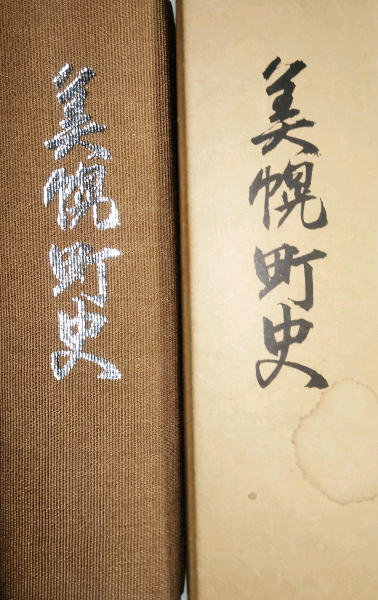 美幌町史
美幌町史